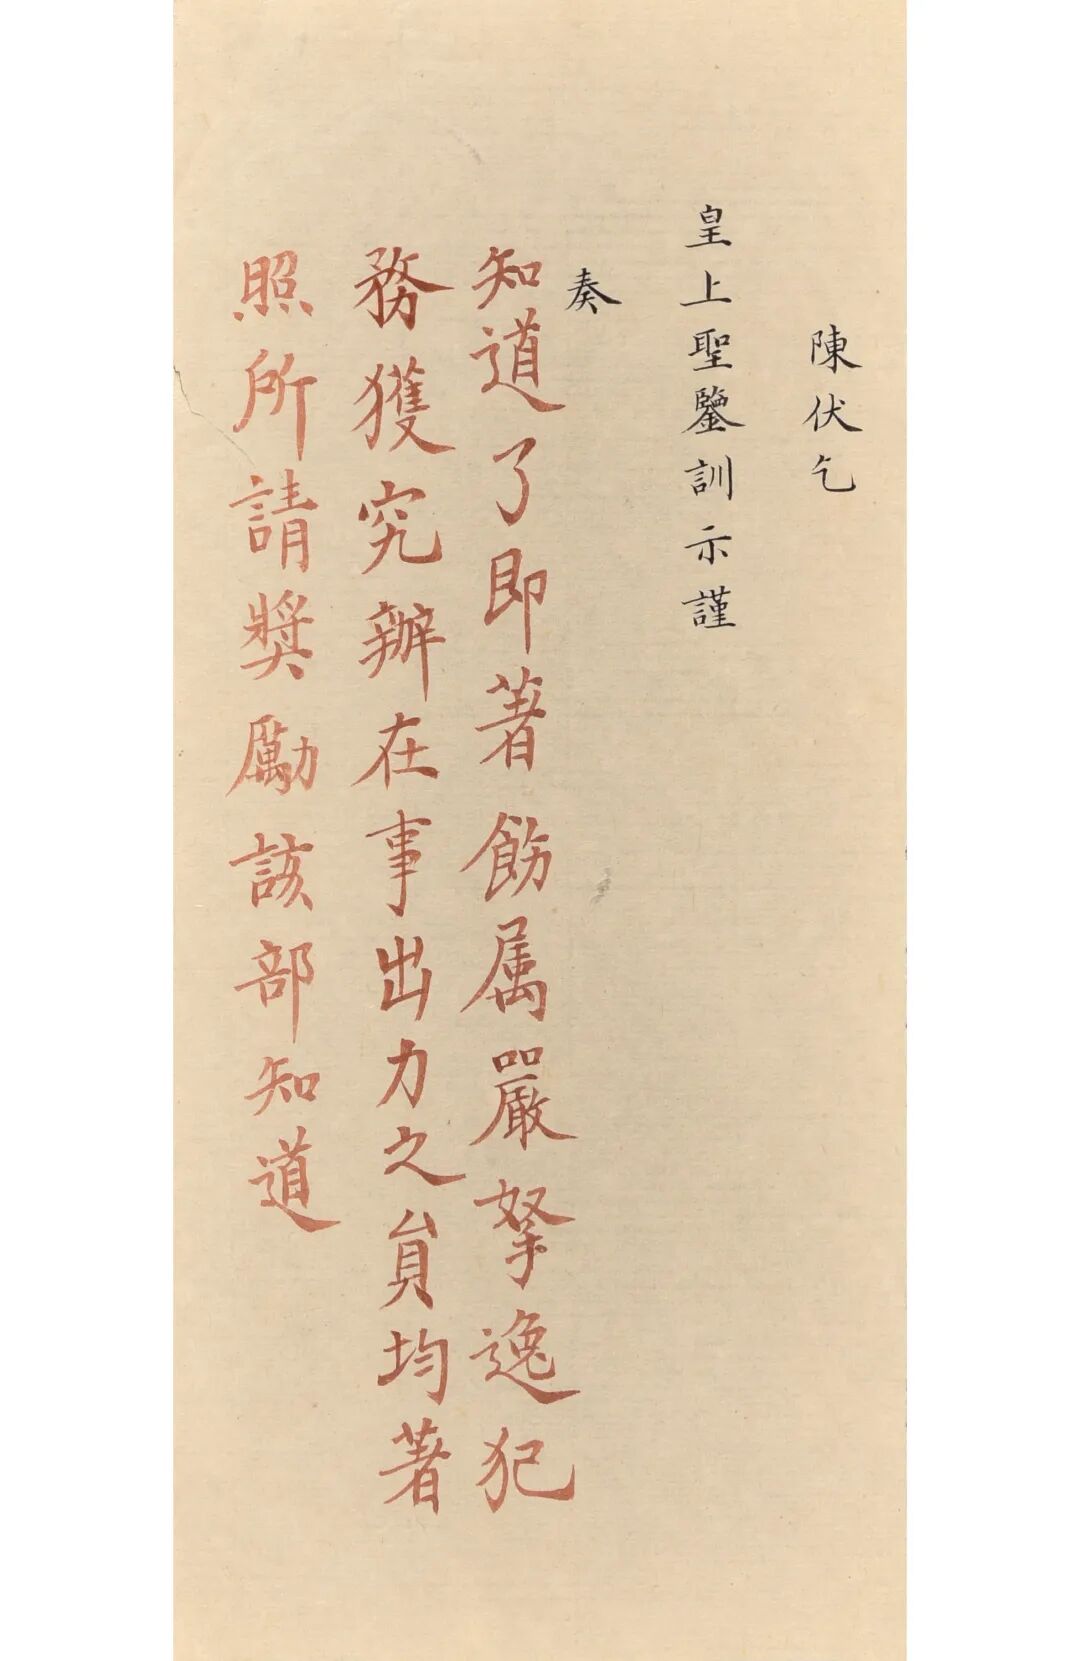 陳伏乞
皇上聖鑒訓示謹
奏
知道了即著飭属嚴拏逸犯
務獲究辦在事出力之員均著
照所請獎勵該部知道